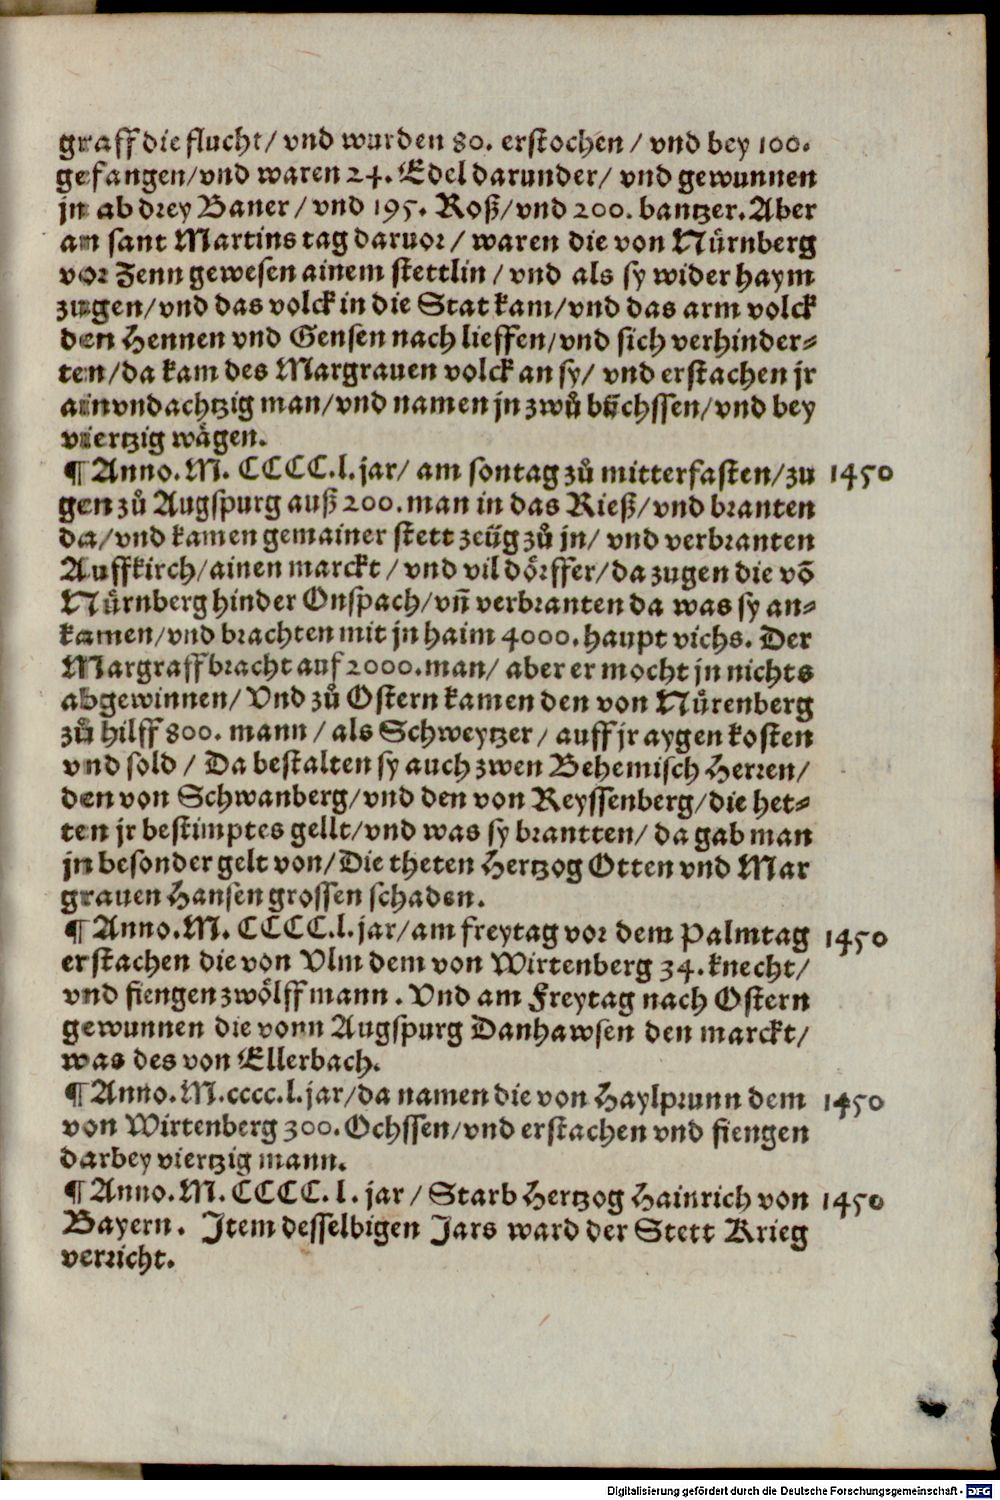 graff die flucht/ vnd wurden 80. erstochen / vnd bey 100.
gefangen/vnd waren 24. Edel darunder/ vnd gewunnen
jn ab drey Baner / vnd 195. Roß/vnd 200. bantzer. Aber
an sant Martins tag daruor / waren die von Nürnberg
vor Zenn gewesen ainem stettlin / vnd als sy wider haym
zugen/vnd das volck in die Stat kam/vnd das arm volck
den Hennen vnd Gensen nach lieffen/vnd sich verhinder-
ten/da kam des Margrauen volck an sy/ vnd erstachen jr
ainvndachtzig man/vnd namen jn zwů bůchssen/vnd bey
viertzig wågen.
¶ Anno. M. CCCC.l. jar/ am sontag zů mitterfasten/zu 1450
gen zů Augspurg auß 200. man in das Rieß/vnd branten
da/vnd kamen gemainer stett zeüg zů jn/ vnd verbranten
Auffkirch/ainen marckt / vnd vil dörffer/da zugen die võ
Nürnberg hinder Onspach/vñ verbranten da was sy an-
kamen/vnd brachten mit jn haim 4000. haupt vichs. Der
Margraff bracht auf 2000. man/ aber er mocht jn nichts
abgewinnen/ Vnd zů Ostern kamen den von Nürenberg
zů hilff 800. mann / als Schweytzer / auff jr aygen kosten
vnd sold / Da bestalten sy auch zwen Behemisch Herren/
den von Schwanberg/vnd den von Reyssenberg/die het-
ten jr bestimptes gellt/vnd was sy brantten/ da gab man
jn besonder gelt von/Die theten Hertzog Otten vnd Mar
grauen Hansen grossen schaden.
¶ Anno. M. CCCC.l. jar/am freytag vor dem Palmtag 1450
erstachen die von Vlm dem von Wirtenberg 34. knecht/
vnd fiengen zwölff mann . Vnd am Freytag nach Ostern
gewunnen die vonn Augspurg Danhawsen den marckt/
was des von Ellerbach.
¶ Anno. M.cccc.l. jar/da namen die von Haylprunn dem 1450
von Wirtenberg 300. Ochssen/vnd erstachen vnd fiengen
darbey viertzig mann.
¶ Anno. M. CCCC. l. jar / Starb Hertzog Hainrich von 1450
Bayern. Item desselbigen Jars ward der Stett Krieg
verricht.
Digitalisierung gefördert durch die Deutsche Forschungsgemeinschaft - DFG